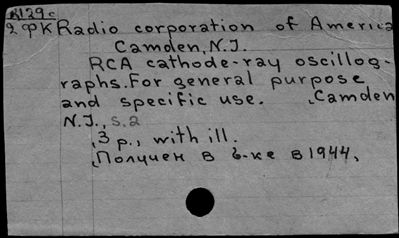 R129c
9.ФК Radio corporation of America
Camden, N.J.
RCA cathode-ray oscillog-
raphs. For general purpose
and specific use. Camden
N.J., s.a
3 p., with ill.
Получен в б-ке в 1944.